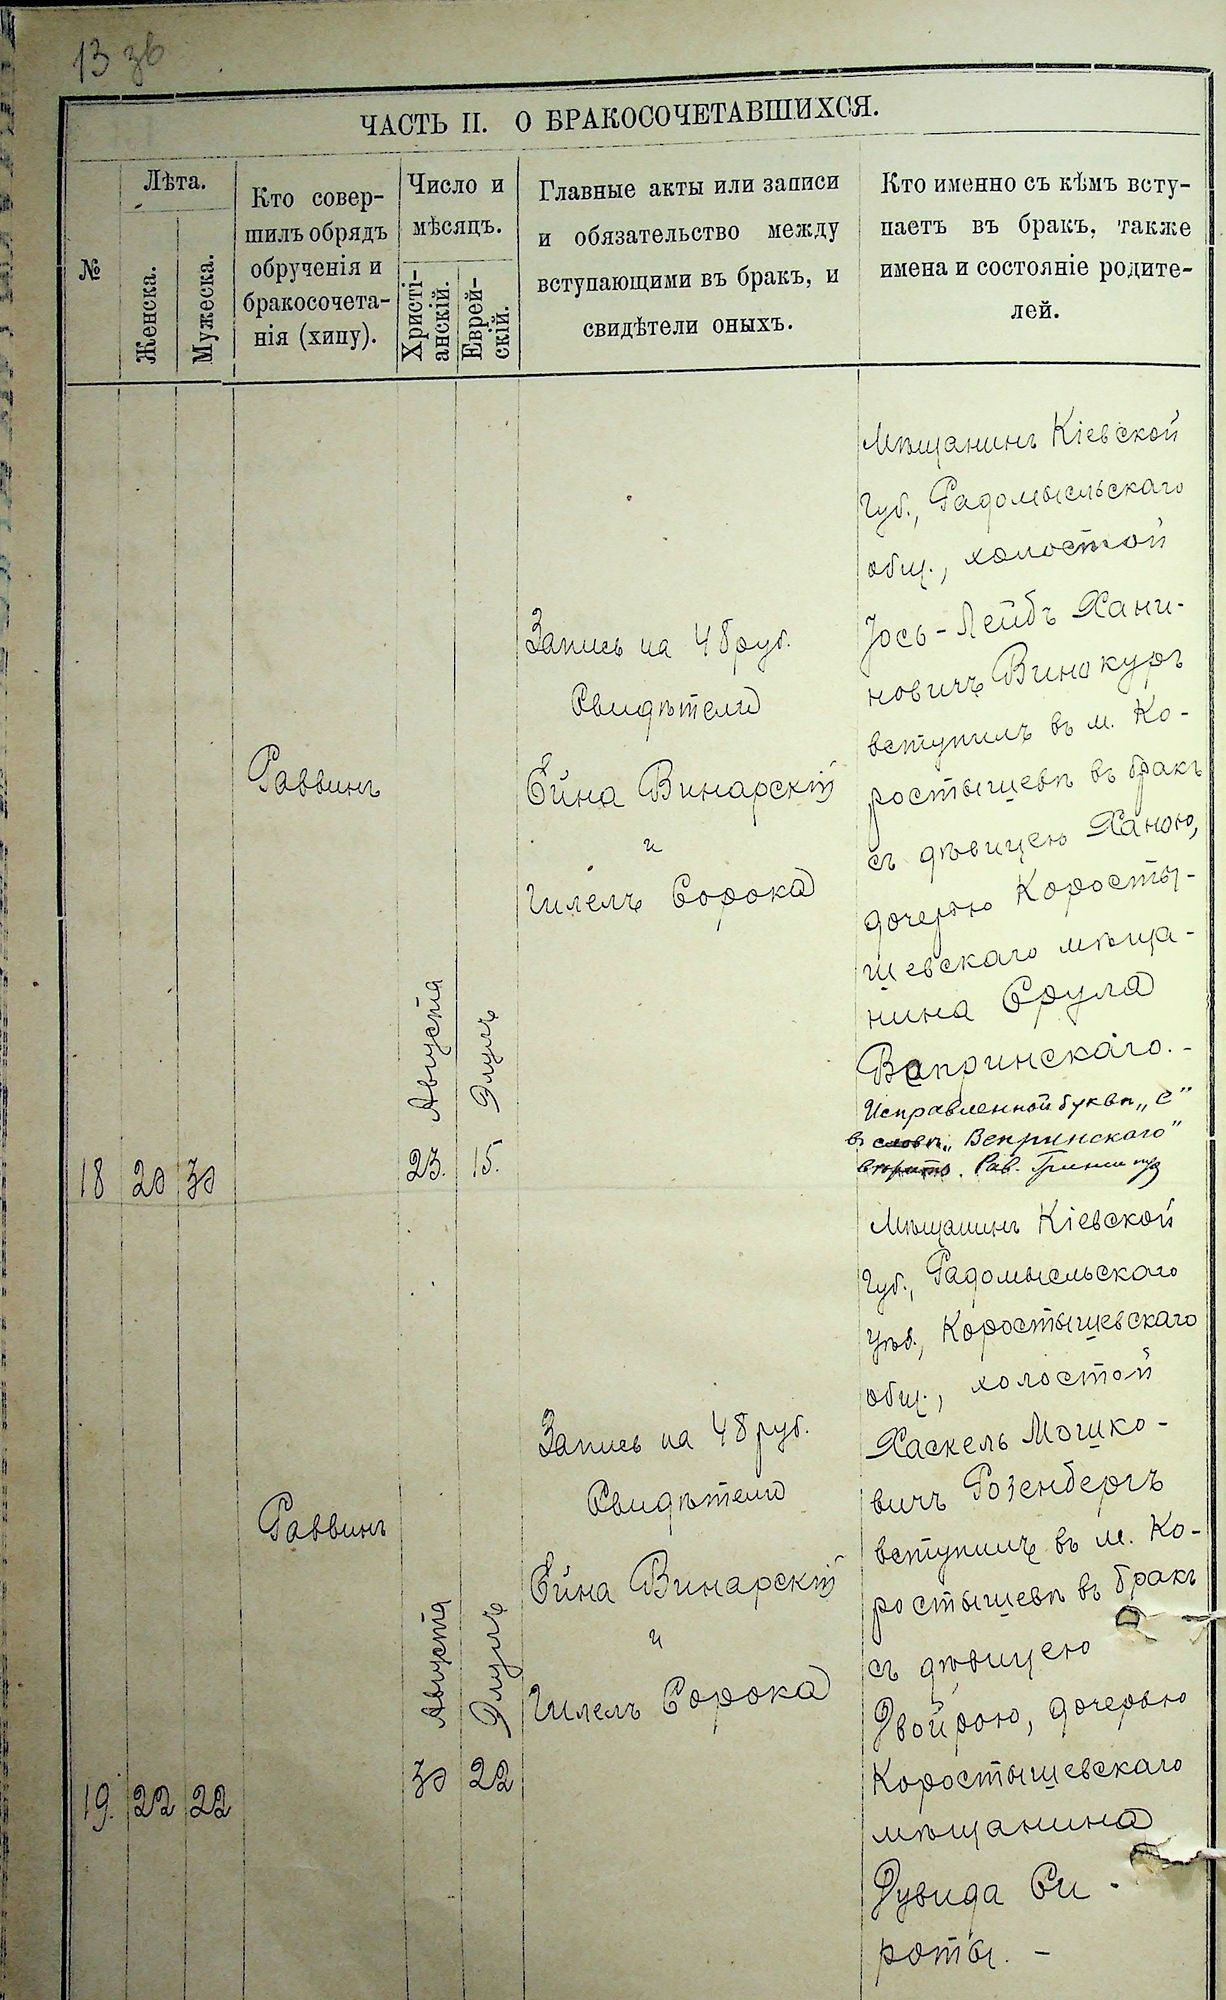 13 зв
ЧАСТЬ II. О БРАКОСОЧЕТАВШИХСЯ.
№
Лѣта.
Женска.
Мужеска.
Кто совер-
шилъ обрядъ
обрученія и
бракосочета-
нія (хипу).
Число и
мѣсяцъ.
Христі-
анскій.
Еврей-
скій.
Главные акты или записи
и обязательство между
вступающими въ бракъ, и
свидѣтели оныхъ.
Кто именно съ кѣмъ всту-
паетъ въ бракъ, также
имена и состояніе родите-
лей.
18
20
30
Раввинъ
23.
Августа
15.
Элулъ
Запись на 48 руб.
Свидѣтели
Ейна Винарскій
и
Гилелъ Сорока
Мѣщанинъ Кіевской
Губ., Радомысльскаго
общ., холостой
Іось-Лейбъ Хани-
новичъ Винокуръ
вступилъ въ м. Ко-
ростышевѣ въ бракъ
съ дѣвицею Ханою,
дочерью Коросты-
шевскаго мѣща-
нина Срула
Вепринскаго.-
Исправленной буквѣ „е"
въ словѣ „Вепринскаго"
вѣрить. Рав.
19.
22
22
Раввинъ
30
Августа
22
Элулъ
Запись на 48 руб.
Свидѣтели
Ейна Винарскій
и
Гилелъ Сорока
Мѣщанинъ Кіевской
Губ., Радомысльскаго
уѣз., Коростышевскаго
общ., холостой
Хаскель Мошко-
вичъ Розенбергъ
вступилъ въ м. Ко-
ростышевѣ въ бракъ
съ дѣвицею
Двойрою, дочерью
Коростышевскаго
мѣщанина
Дувида Си-
роты. -